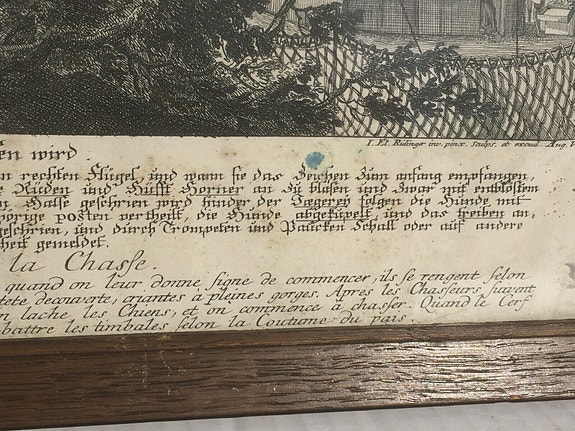 I. El. Ridinger inv. pinx. Sculps. et excud. Aug. V
en wird
n rechten Flügel, und wann sie das Zeichen Zum anfang empfangen,
e Rüden und Hüfft Hörner an zü blasen und zwar mit entblöstem
n Halse geschrien wird hinder, der Jægerey folgen die Hunde mit
hörige posten vertheilt, die Hunde abgeküpelt, und das treiben an,
geschrien, und durch Trompeten und Paucken Schall oder auf andere
heit gemeldet.
la Chasse.
quand on leur donne signe de commencer, ils se rengent selon
tete decouverte, criantes à pleines gorges. Après les Chasseurs suivent
n lache les Chiens, et on commence à chasser. Quand le Cerf
battre les timbales selon la Coutume du pais.